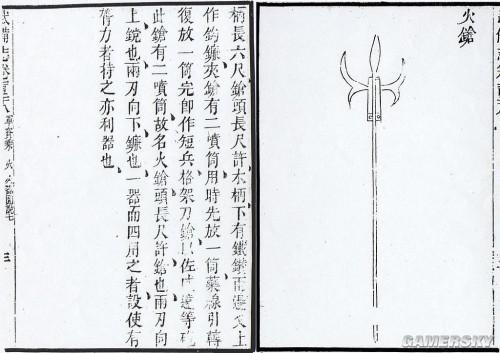 火鎗
柄長六尺鎗頭長尺許木柄下有鐵鐏兩邊叉上
作鉤鐮夾鎗有二噴筒用時先放一筒藥線引轉
復放一筒完即作短兵格架刀鎗以佐威遠等砲
此鎗有二噴筒故名火鎗頭長尺許鎗也兩刃向
上也兩刃向下鐮也一器而四用之者設使有
膂力者持之亦利器也
武備志卷 軍資乘 火 三
GAMERSKY